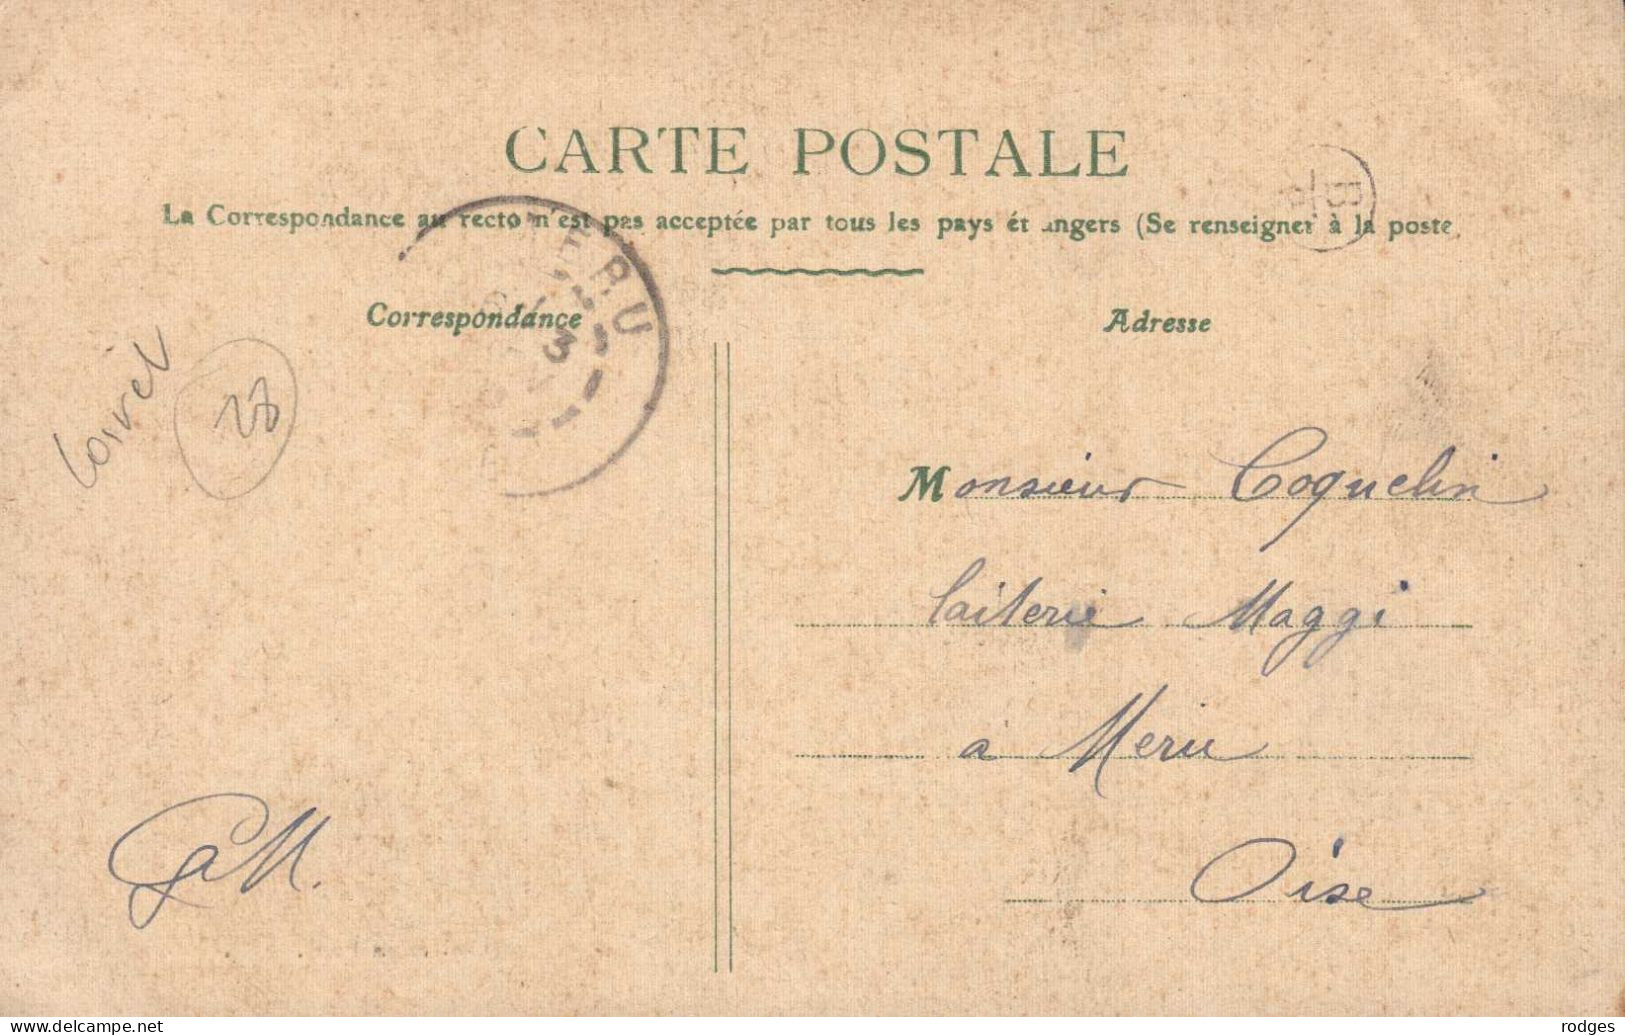 CARTE POSTALE
La Correspondance au recto n'est pas acceptée par tous les pays ét angers (Se renseigner à la poste
Correspondance
Adresse
RU
3
27
Monsieur Coquelin
laiterie Maggi
a Meru
Oise
www.delcampe.net
rodges